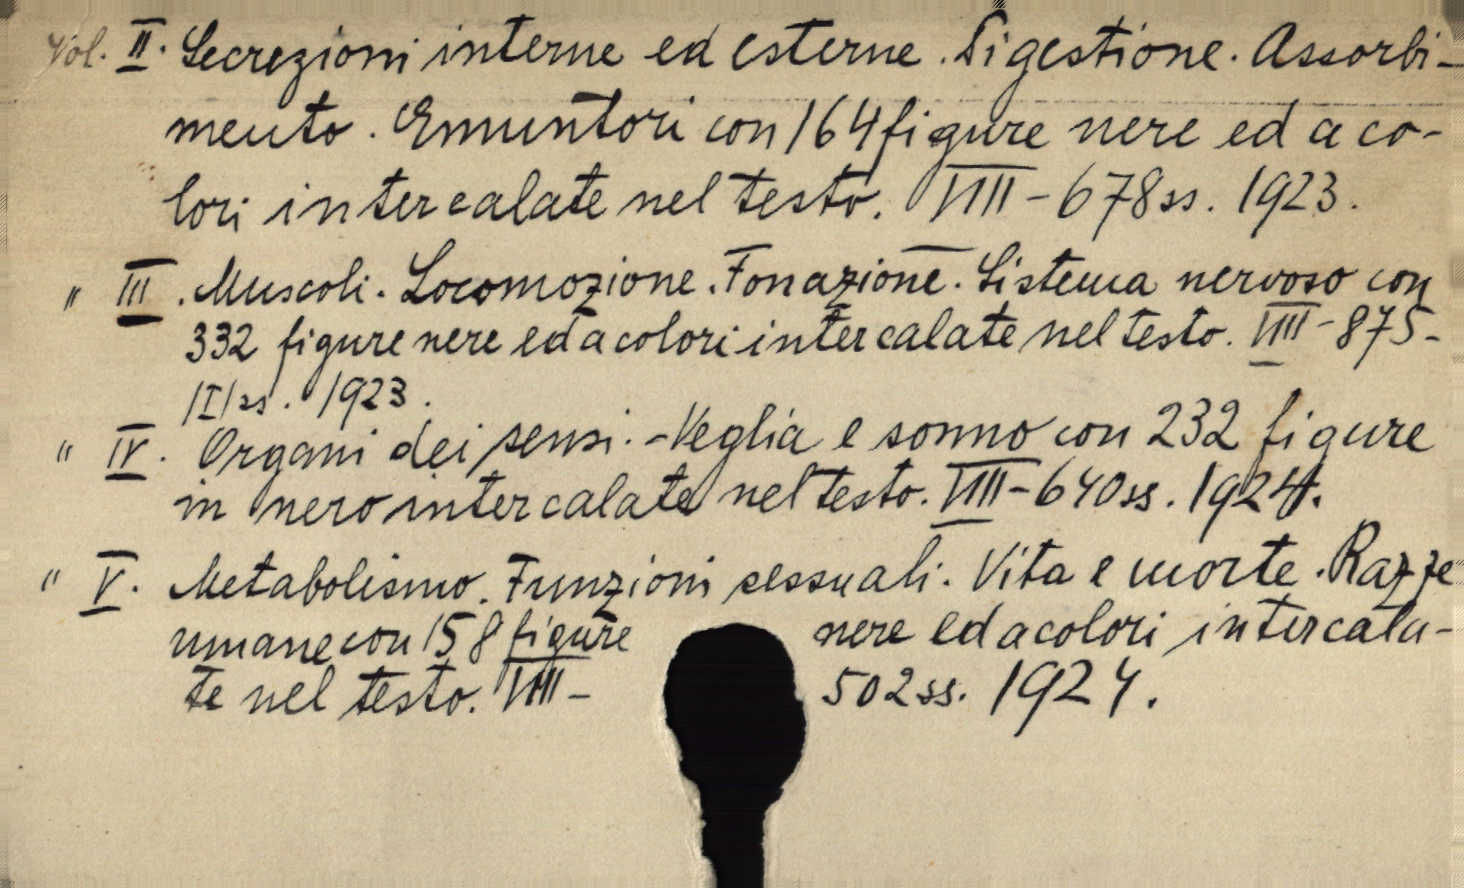 Vol. II. Secrezioni interne ed esterne. Digestione. Assorbi-
mento. Emuntori con 164 figure nere ed a co-
lori intercalate nel testo. VIII - 678 ss. 1923.
" III. Muscoli. Locomozione. Fonazione. Sistema nervoso con
332 figure nere ed a colori intercalate nel testo. VIII - 875 -
/I/ ss. 1923.
" IV. Organi dei sensi. - Veglia e sonno con 232 figure
in nero intercalate nel testo. VIII - 640 ss. 1924.
" V. Metabolismo. Funzioni sessuali. Vita e morte. Razze
umane con 158 figure nere ed a colori intercala-
te nel testo. VIII - 502 ss. 1924.